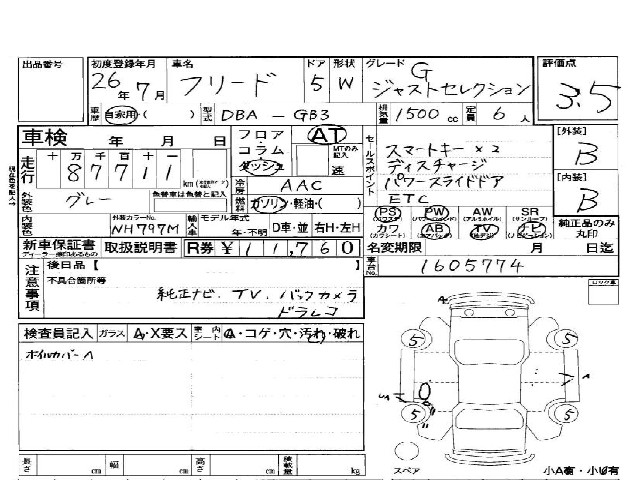 出品番号
初度登録年月 26年 7月
車名 フリード
ドア 5 形状 W
グレード G ジャストセレクション
評価点 3.5
車歴 自家用・( )
型式 DBA-GB3
排気量 1500cc
定員 6人
車検 年 月 日
フロア コラム ダッシュ
AT
MTのみ記入 速
セールスポイント
スマートキー×2
ディスチャージ
パワースライドドア
ETC
[外装] B
[内装] B
走行 十万千百十一
87711
km
冷房 AAC
外装色 グレー
色替車は色替と記入
燃料 ガソリン・軽油・( )
内装色
外装カラーNo. NH797M
輸入車 モデル年式 年・不明
D車・並 右H・左H
PS PW AW SR
カワ AB TV ナビ
純正品のみ丸印
新車保証書 取扱説明書
R券 ¥11,760
名変期限 月 日迄
注意事項
後日品【 】
不具合箇所等
純正ナビ、TV、バックカメラ
ドラレコ
車台No. 1605774
検査員記入
ガラス A・X要ス
車内シート A・コゲ・穴・汚れ・破れ
ホイルカバーA
5 5
A
5 5
長さ cm 幅 cm 高さ cm 積載量 kg
スペア
小A有・小U有